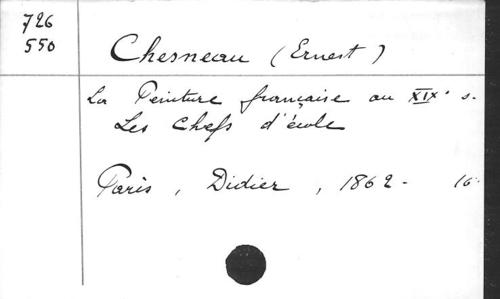 726
550
Chesneau (Ernest)
La Peinture française au XIXe s.
Les Chefs d'école
Paris, Didier, 1862 - 16